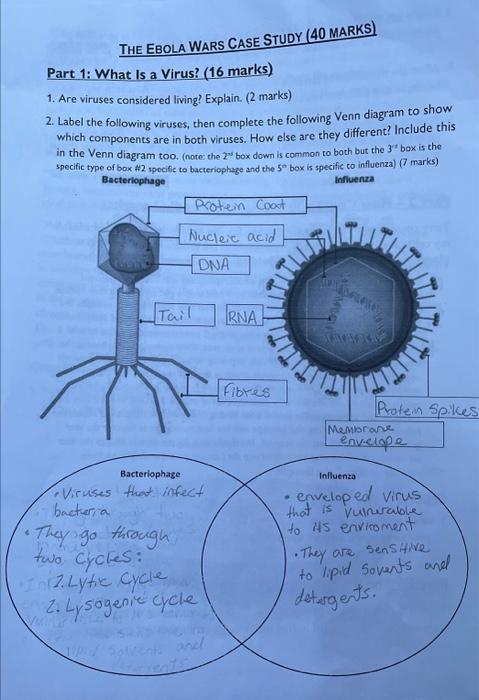 THE EBOLA WARS CASE STUDY (40 MARKS)
Part 1: What Is a Virus? (16 marks)
1. Are viruses considered living? Explain. (2 marks)
2. Label the following viruses, then complete the following Venn diagram to show
which components are in both viruses. How else are they different? Include this
in the Venn diagram too. (note: the 2nd box down is common to both but the 3rd box is the
specific type of box #2 specific to bacteriophage and the 5th box is specific to influenza) (7 marks)
Bacteriophage
Influenza
Protein Coat
Nucleic acid
DNA
Tail
RNA
Fibres
Protein Spikes
Membrane
envelope
Bacteriophage
• Viruses that infect
bacteria
• They go through
two cycles:
1. Lytic cycle
2. Lysogenic cycle
lipid solvents and
Influenza
• enveloped virus
that is vulnerable
to its enviroment
• They are sensitive
to lipid sovents and
detergents.